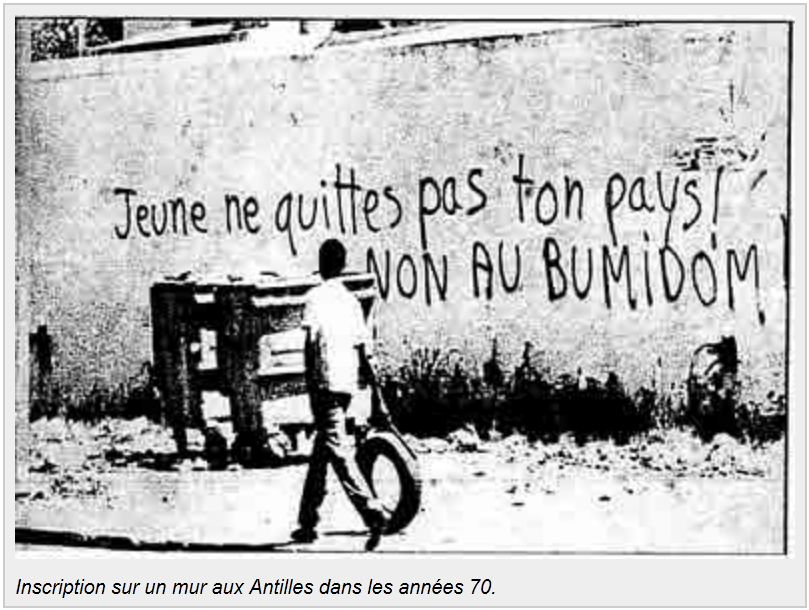 Jeune ne quittes pas ton pays!
NON AU BUMIDOM
Inscription sur un mur aux Antilles dans les années 70.